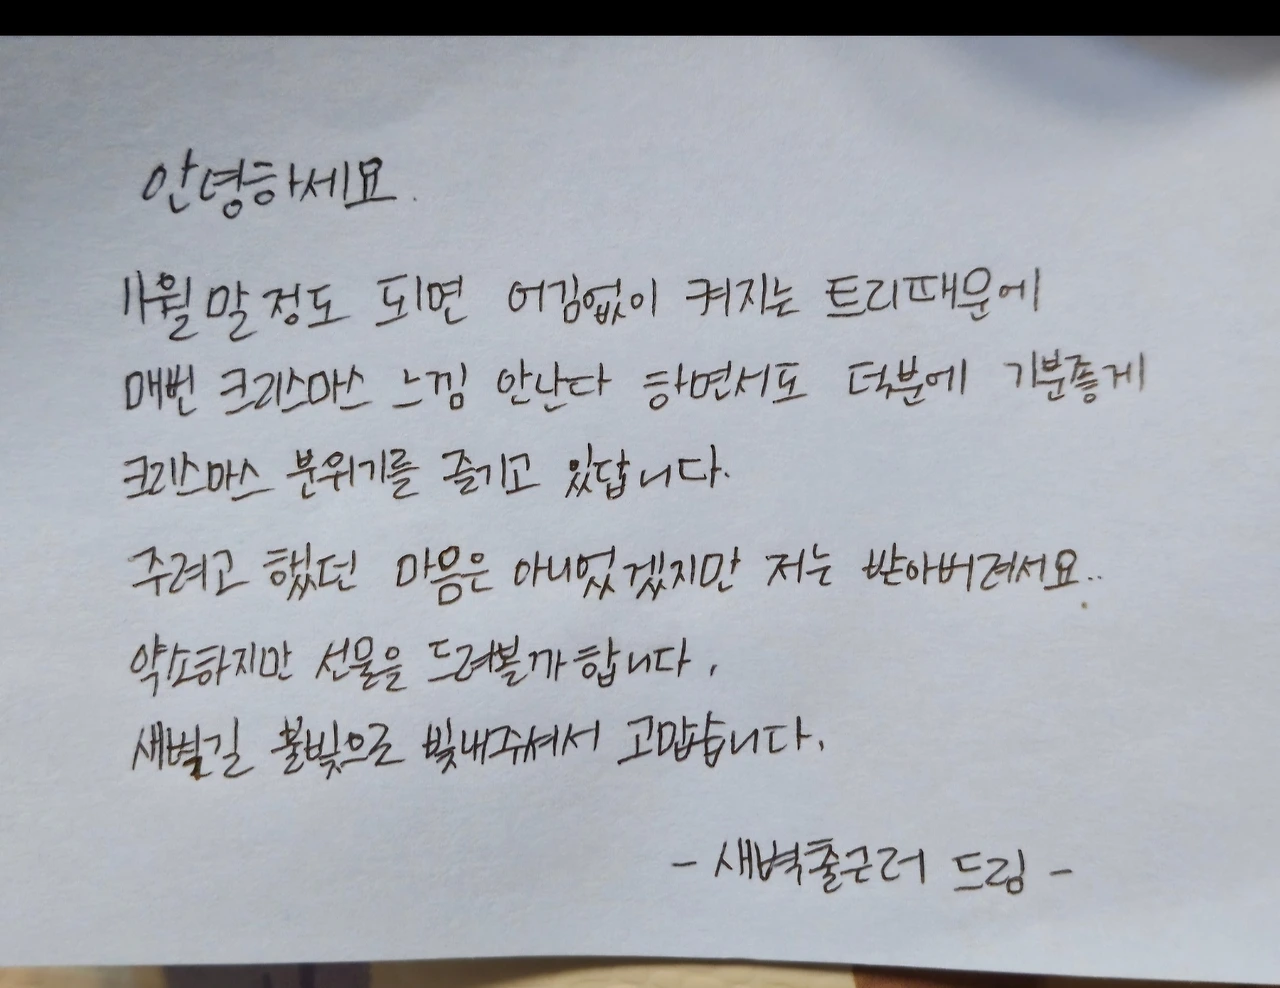 안녕하세요.
11월 말 정도 되면 어김없이 켜지는 트리때문에
매번 크리스마스 느낌 안난다 하면서도 덕분에 기분좋게
크리스마스 분위기를 즐기고 있답니다.
주려고 했던 마음은 아니었겠지만 저는 받아버려서요..
약소하지만 선물을 드려볼까합니다.
새벽길 불빛으로 빛내주셔서 고맙습니다.
- 새벽출근러 드림 -